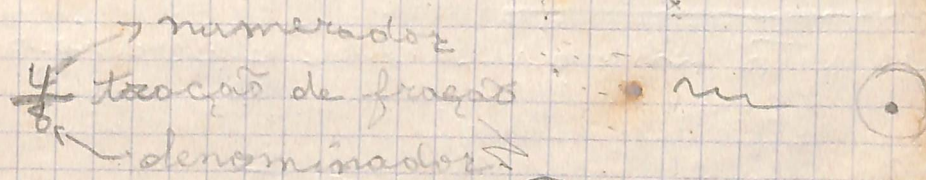 numerador
4/8 tração de fração
denominador